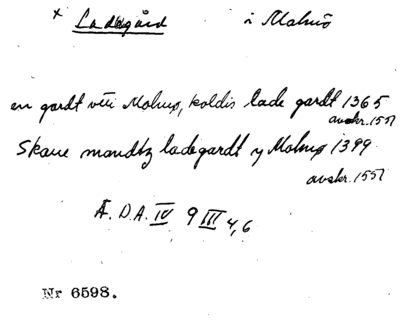 x Ladegård i Malmö
en gardt viii Malmø, koldis lade gardt 1365
avskr. 1551
Skane mandtz ladegardt y Malmø 1399
avskr. 1551
Ä. D. A. IV 9 III 4,6
Nr 6598.